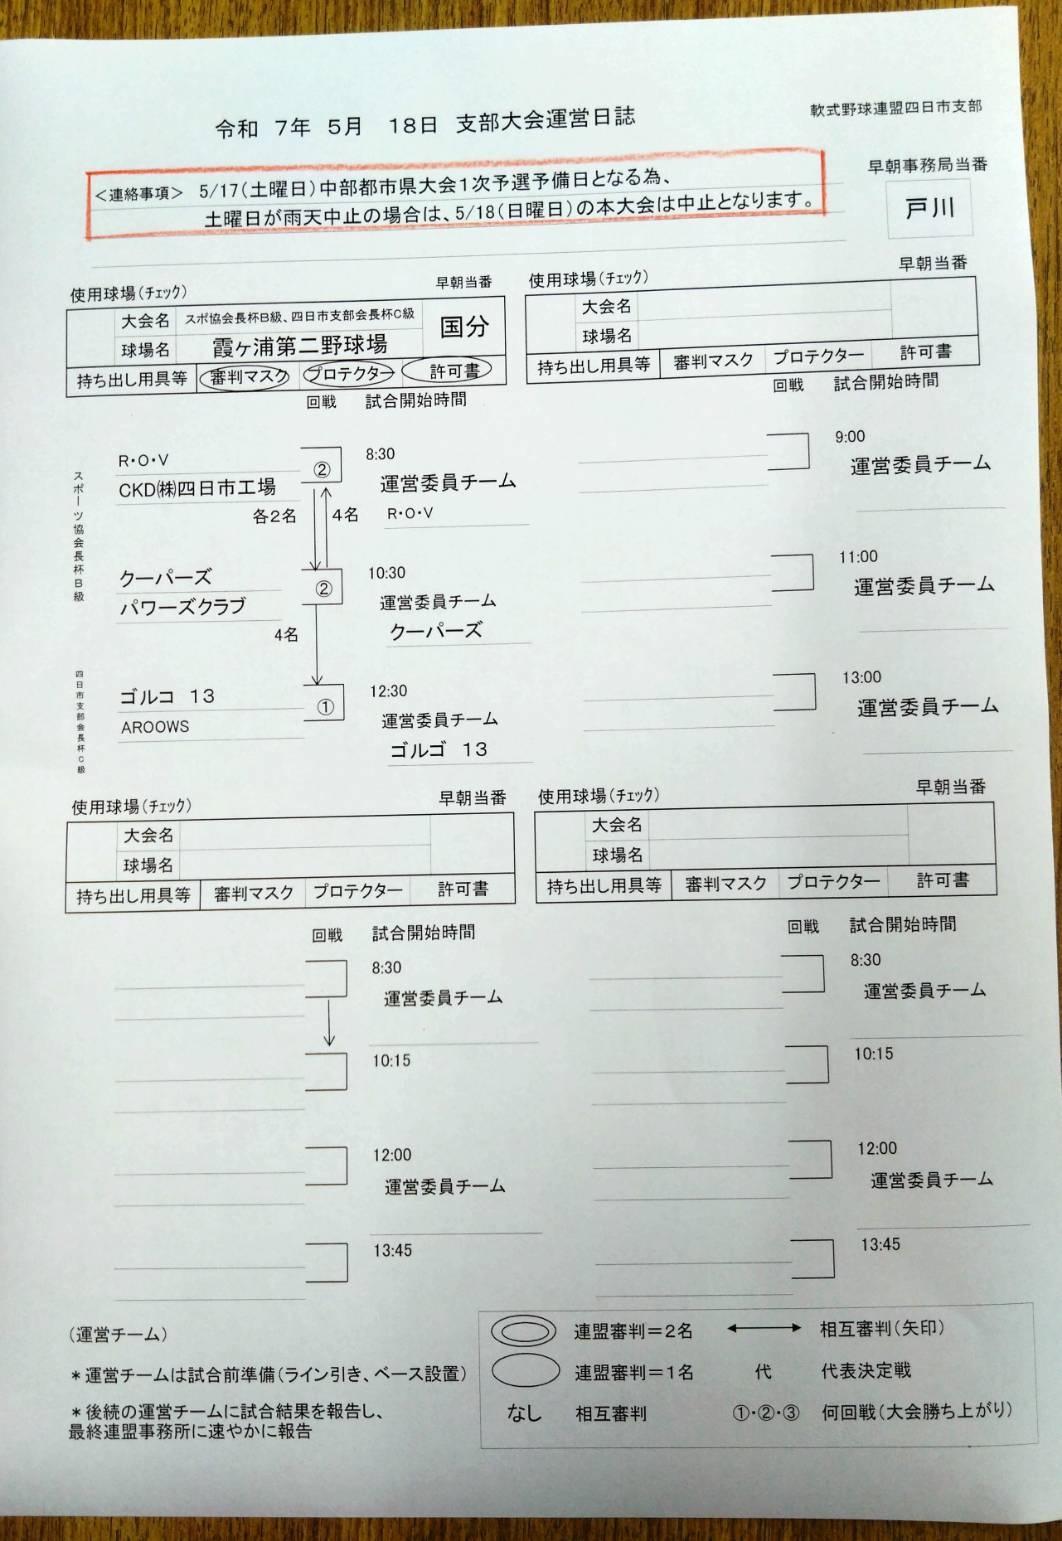 令和 7年 5月 18日 支部大会運営日誌
軟式野球連盟四日市支部
＜連絡事項＞ 5/17(土曜日)中部都市県大会1次予選予備日となる為、
土曜日が雨天中止の場合は、5/18(日曜日)の本大会は中止となります。
早朝事務局当番
戸川
使用球場(チェック) 早朝当番
大会名 スポ協会長杯B級、四日市支部会長杯C級 国分
球場名 霞ヶ浦第二野球場
持ち出し用具等 審判マスク プロテクター 許可書
回戦 試合開始時間
スポーツ協会長杯B級
R・O・V ② 8:30
CKD㈱四日市工場 運営委員チーム
各2名 4名 R・O・V
クーパーズ ② 10:30
パワーズクラブ 運営委員チーム
4名 クーパーズ
四日市支部会長杯C級
ゴルコ 13 ① 12:30
AROOWS 運営委員チーム
ゴルゴ 13
使用球場(チェック) 早朝当番
大会名
球場名
持ち出し用具等 審判マスク プロテクター 許可書
回戦 試合開始時間
9:00
運営委員チーム
11:00
運営委員チーム
13:00
運営委員チーム
使用球場(チェック) 早朝当番
大会名
球場名
持ち出し用具等 審判マスク プロテクター 許可書
回戦 試合開始時間
8:30
運営委員チーム
10:15
12:00
運営委員チーム
13:45
使用球場(チェック) 早朝当番
大会名
球場名
持ち出し用具等 審判マスク プロテクター 許可書
回戦 試合開始時間
8:30
運営委員チーム
10:15
12:00
運営委員チーム
13:45
(運営チーム)
＊運営チームは試合前準備(ライン引き、ベース設置)
＊後続の運営チームに試合結果を報告し、
最終連盟事務所に速やかに報告
連盟審判＝2名 相互審判(矢印)
連盟審判＝1名 代 代表決定戦
なし 相互審判 ①・②・③ 何回戦(大会勝ち上がり)